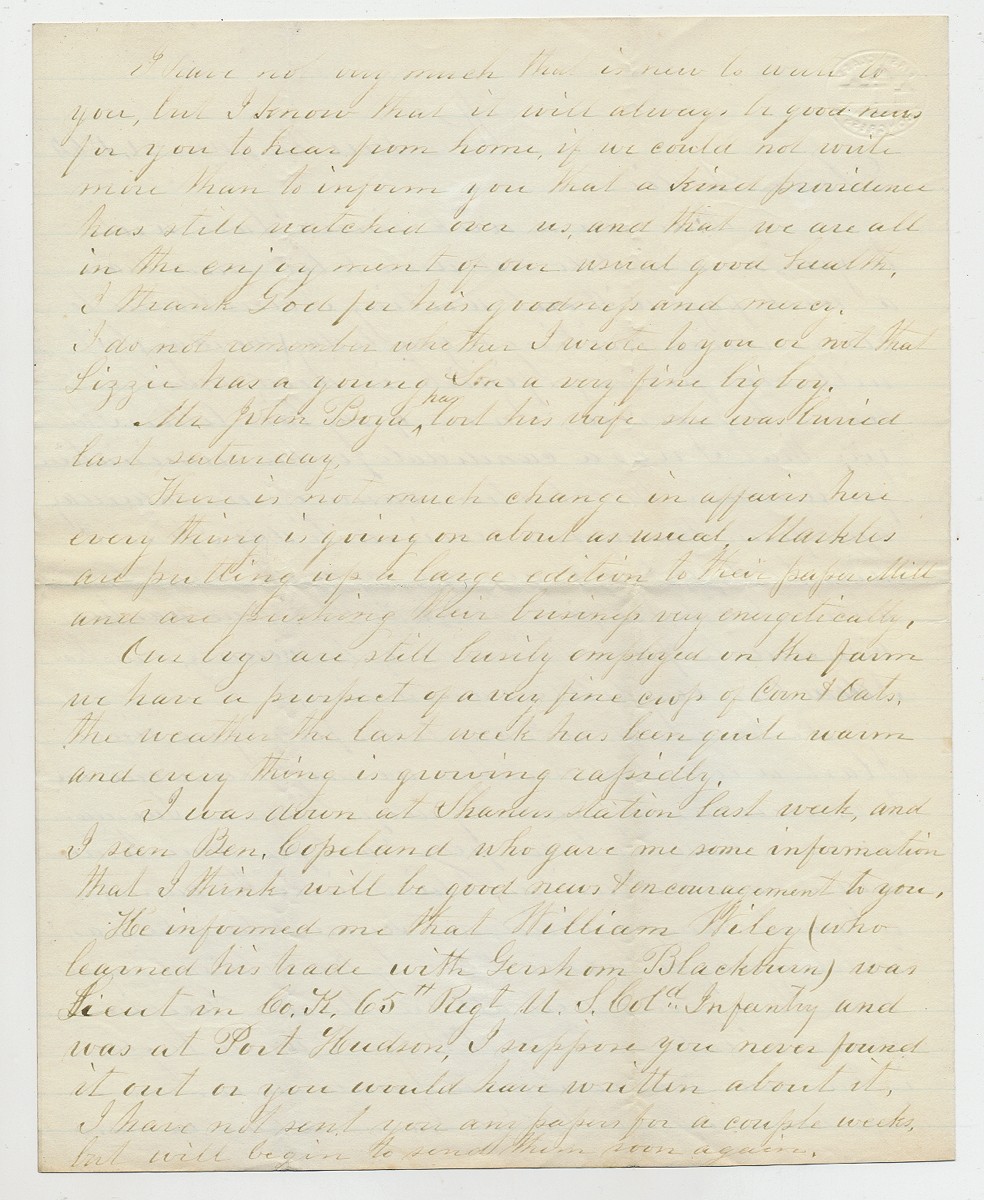 I have not very much that is new to write to
you, but I know that it will always be good news
for you to hear from home, if we could not write
more than to inform you that a kind providence
has still watched over us, and that we are all
in the enjoyment of our usual good health,
I thank God for his goodness and mercy.
I do not remember whether I wrote to you or not that
Lizzie has a young Son a very fine big boy.
Mr John Boyd has lost his wife she was buried
last saturday,
There is not much change in affairs here
every thing is going on about as usual, Markles
are putting up a large edition to their paper Mill
and are pushing their business very energetically,
Our boys are still busily employed on the farm
we have a prospect of a very fine crop of Corn & Oats.
the weather the last week has been quite warm
and every thing is growing rapidly.
I was down at Shaners station last week, and
I seen Ben. Copeland who gave me some information
that I think will be good news & encouragement to you,
He informed me that William Wiley (who
learned his trade with Gershom Blackburn) was
Lieut in Co. K, 65th Regt U. S. Cold Infantry and
was at Port Hudson, I suppose you never found
it out or you would have written about it,
I have not sent you any papers for a couple weeks,
but will begin to send them soon again.